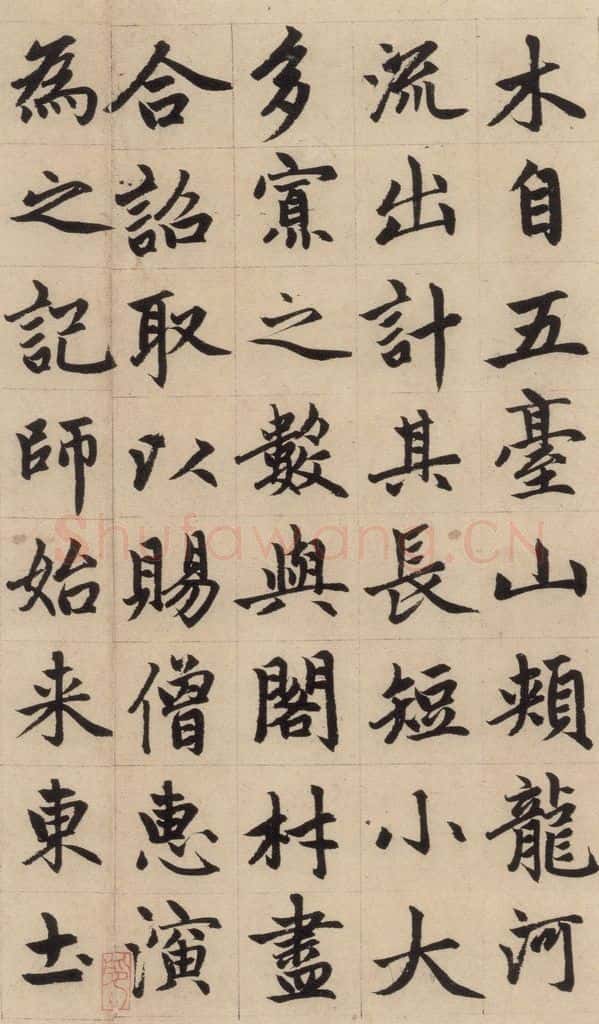 木自五臺山頰龍河
流出計其長短小大
多寡之數與閣材盡
合詔取以賜僧惠演
為之記師始来東土
Shufawang.CN